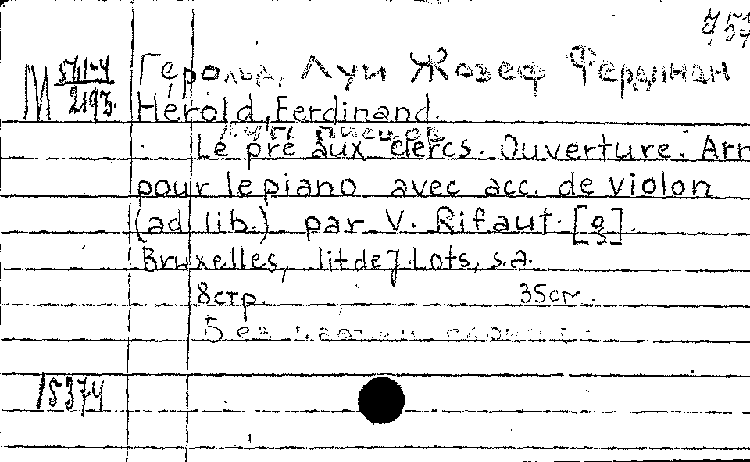 M 571-4
2193.
Герольд, Луи Жозеф Фердинан
Herold, Ferdinand.
Луг писцов
Le pré aux clercs. Ouverture. Arr
pour le piano avec acc. de violon
(ad lib.) par V. Rifaut. [g].
Bruxelles, lit de J. Lots, s.a.
8стр. 35см.
Без
15374